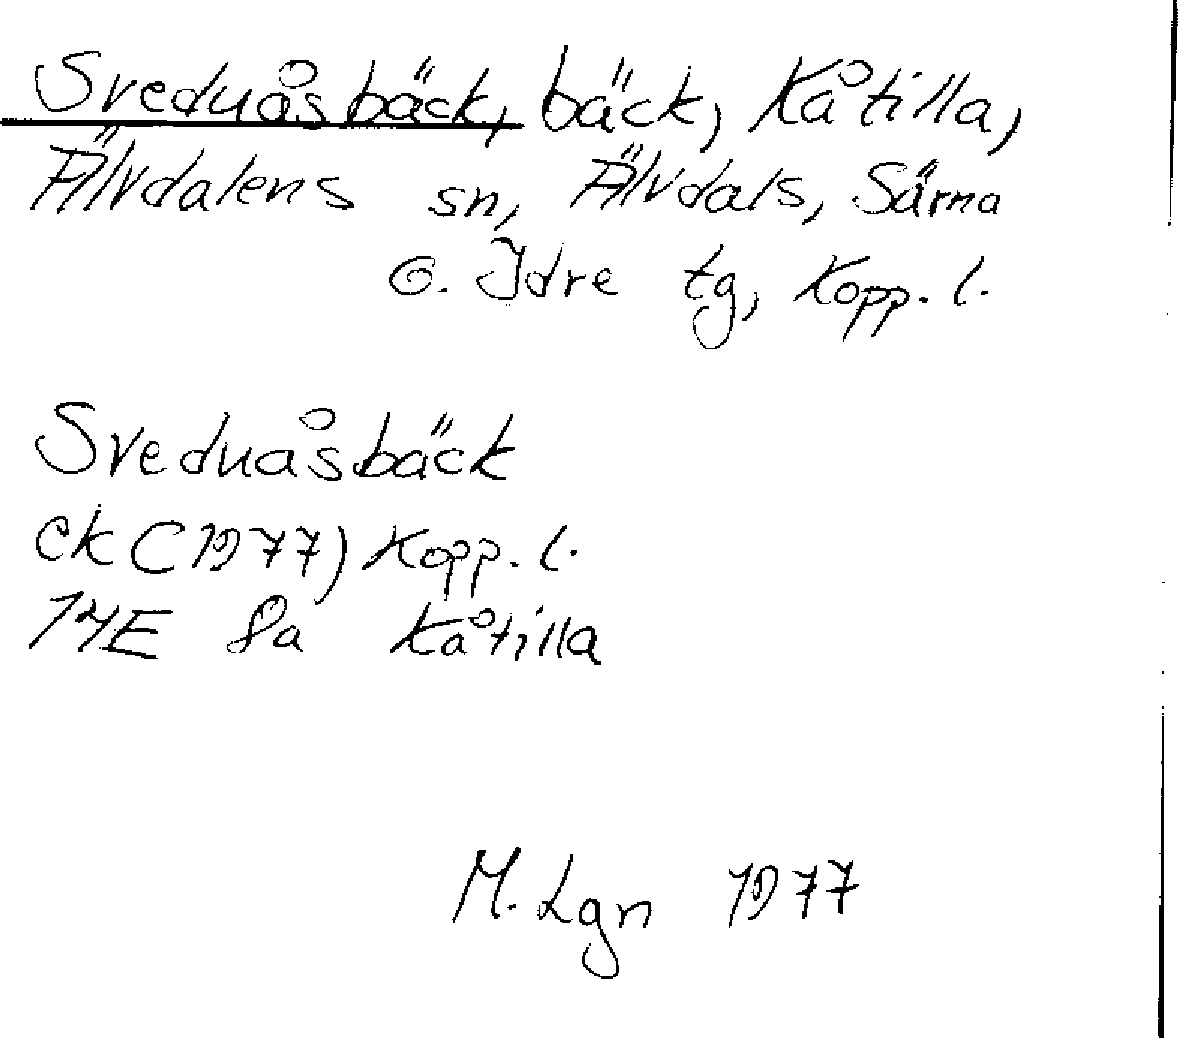 Sveduåsbäck, bäck, Kåtilla,
Älvdalens sn, Älvdals, Särna
o. Idre tg, Kopp. l.
Sveduåsbäck
ek (1977) Kopp. l.
14E 8a Kåtilla
M. Lgn 1977